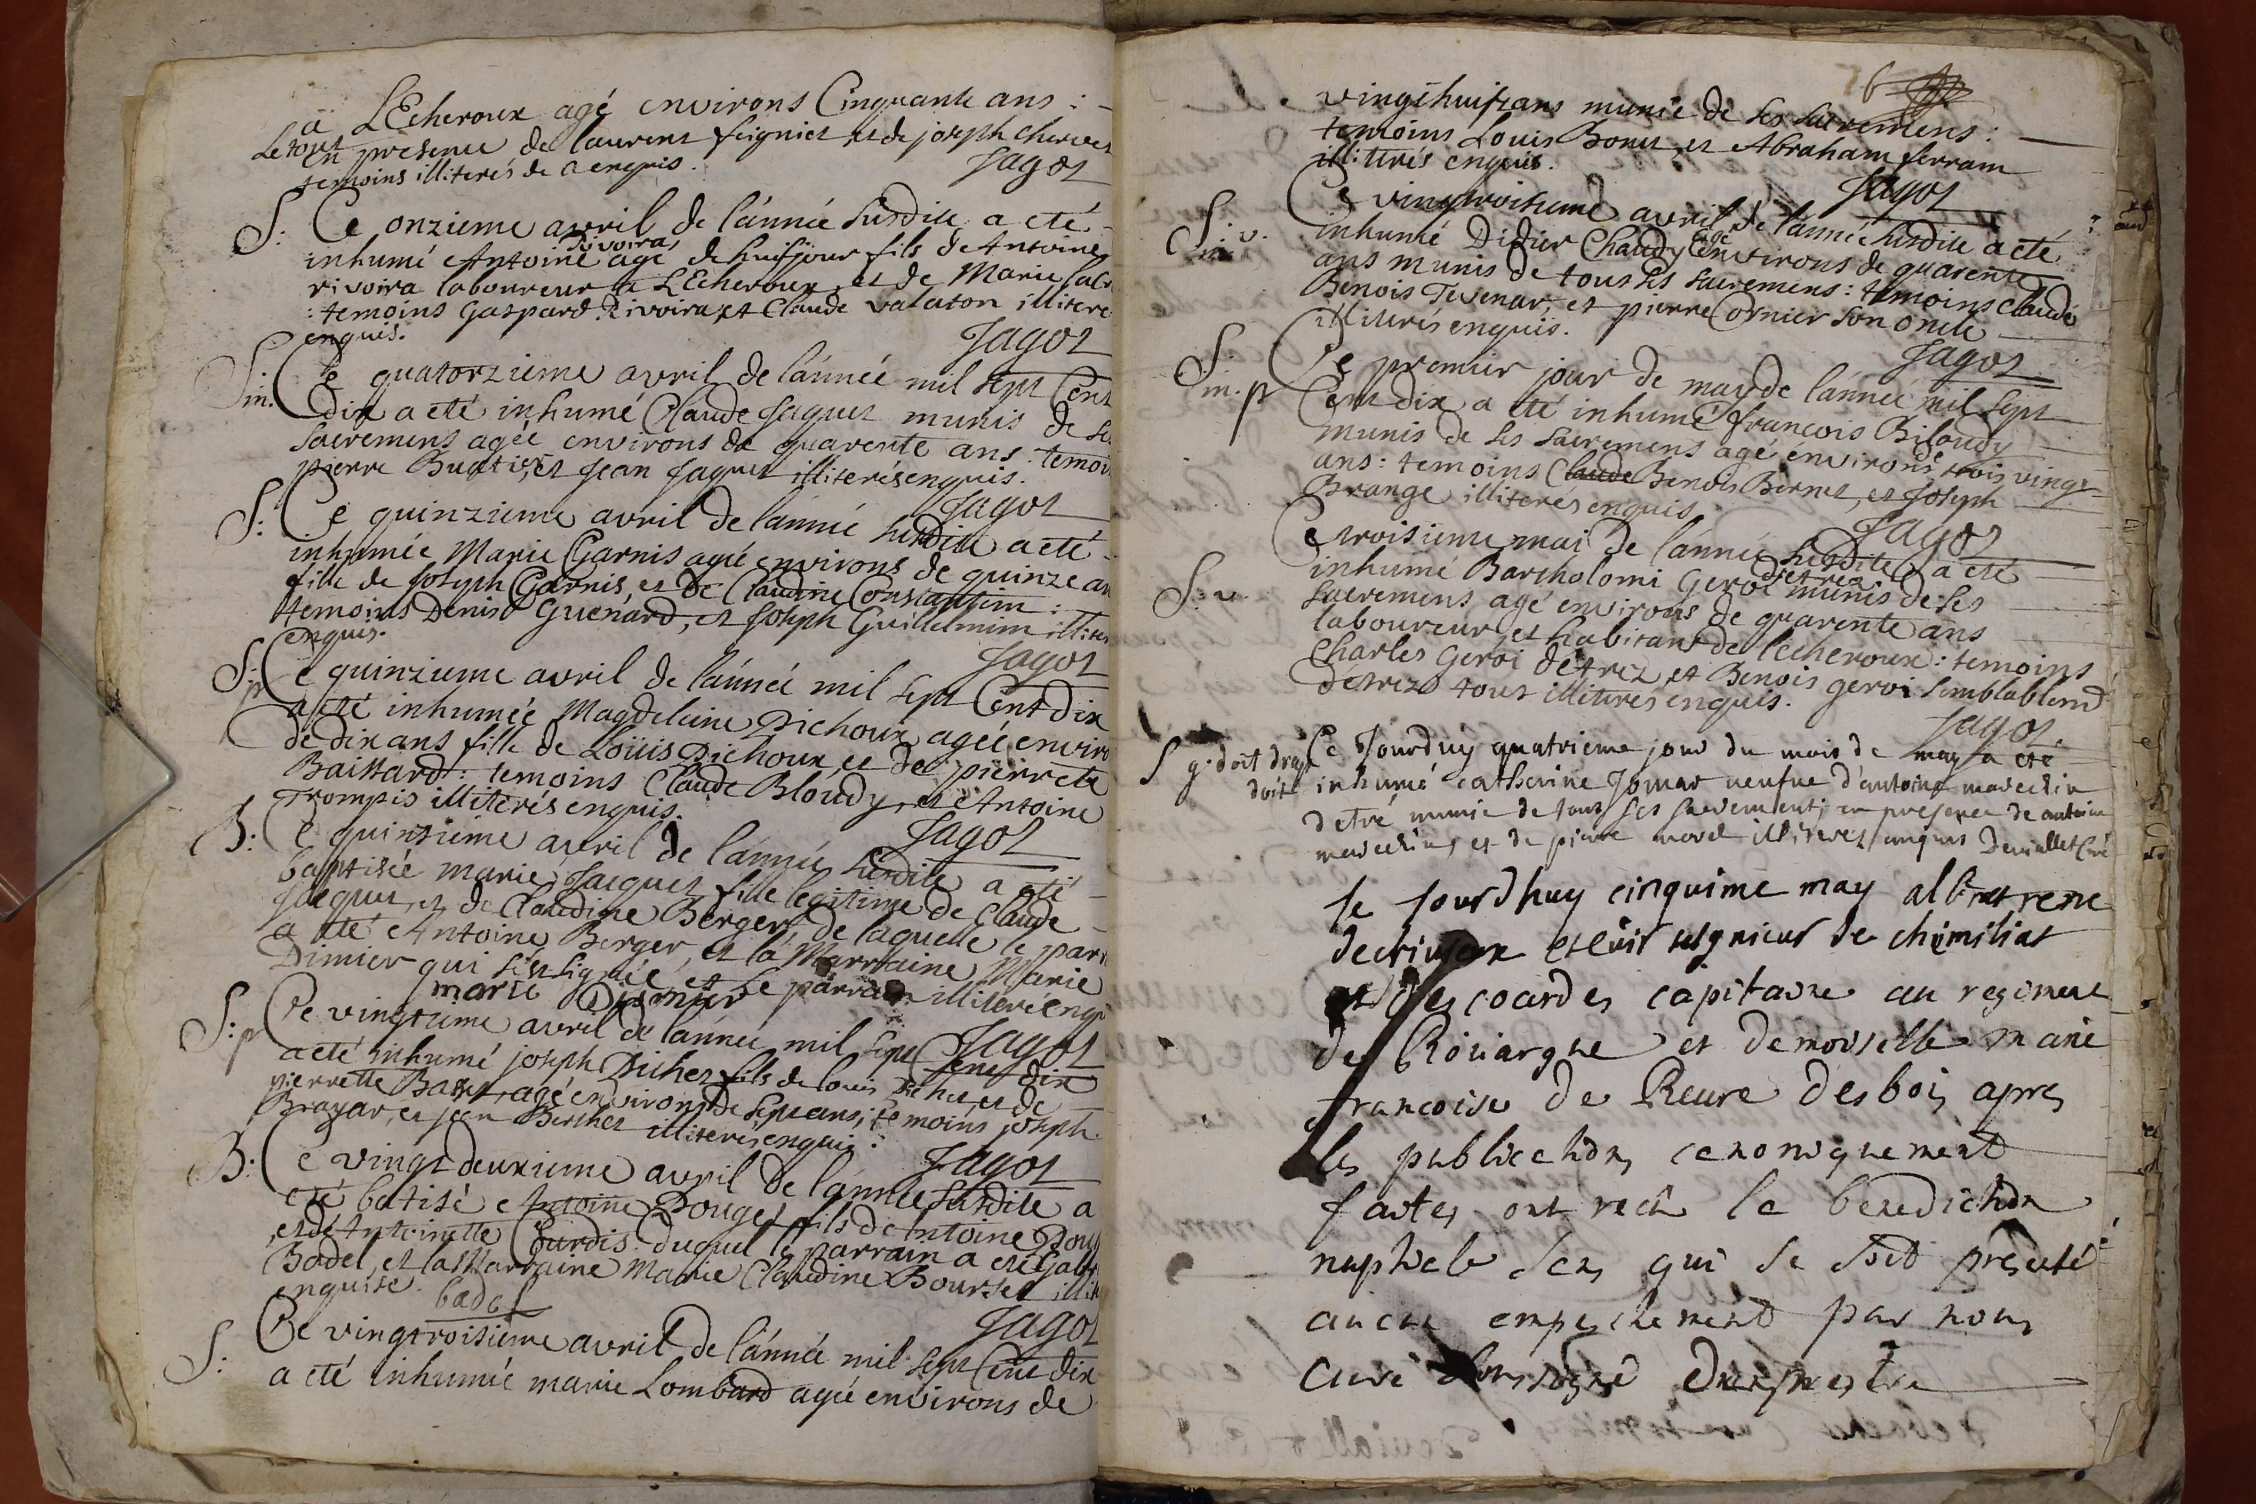 a LEcheroux agé environs Cinquante ans :
Le tout en presence de laurens feignier et de joseph chervet
temoins illiterés de a enquis.
Jagot
S: Ce onzieme avril de lánnée susdite a eté
inhumé Antoine rivoira agé de huitjour fils de Antoine
rivoira laboureur a LEcheroux et de Marie
: temoins Gaspard Rivoira, et Claude valaton illitere
enquis.
Jagot
S: in. Ce quatorzieme avril de lánnée mil sept Cent
dix a eté inhumé Claude Jaquet munis de
sacremens agéé environs de quarente ans : temoi
pierre et Jean Jaquet illiterés enquis.
Jagot
S: Ce quinzieme avril de lánnée susdite a eté
inhumée Marie Garnis agée environs de quinze an
fille de Joseph Garnis, et de Claudine Constantim :
temoins Denis Guenard, et Joseph Guillelmim illite
enquis.
Jagot
S: p Ce quinzieme avril de lánnée mil sept Cent dix
a eté inhumée Magdeleine Dichoux agéé enviro
de dix ans fille de Loüis Dichoux, et de pierrete
Baistard : temoins Claude Bloudy, et Antoine
Trompis illiterés enquis.
Jagot
B: Ce quinzieme avril de lánnée susdite a eté
baptisée marie Jacquet fille legitime de Claude
Jacquet, et de Claudine Berger de laquelle le parr
a eté Antoine Berger, et lá Marraine Marie
Dimier qui sést signéé et le parrain illiteré enqu
marie Dimier
Jagot
S: p Ce vingtieme avril de lánnée mil sept Cent dix
a eté inhumé joseph Dichet fils de louis et de
pierrette agé environs de sept ans ; temoins joseph
Brayar, et jean Berthet illiterés enquis :
Jagot
B: Ce vingt deuxieme avril de lánnée susdite a
eté batisé Antoine Douget fils de Antoine Doug
et de Antoinette Curdis duquel le parrain a eté
Badel, et la Marraine Marie Claudine Bourset illit
enquise. badel
Jagot
S: Ce vingtroisieme avril de lánnée mil sept Cent dix
a eté inhumée marie Lombard agée environs de
6
vingthuit ans munie de ses sacremens :
temoins Louis Bonet et Abraham ferram
illiterés enquis.
Jagot
S: v. Ce vingtroisieme avril de lánnée susdite a eté
inhumé Didier Chaudy agé environs de quarente
ans munis de tous ses sacremens : temoins Claude
Benois Tevenar, et pierre Cornier son oncle
illiterés enquis.
Jagot
S: in. p Ce premier jour de may de lánnée mil sept
Cent dix a eté inhumé francois Biloudy
munis de ses sacremens agé environs de trois vingt
ans : temoins Claude Benois Bernet, et Joseph
Brange illiteres enquis
Jagot
S: v. Ce troisieme mai de lánnée susdite a eté
inhumé Bartholomi Geroi detrez munis de ses
sacremens agé environs de quarente ans
laboureur et habitant de lecheroux : temoins
Charles Geroi détrez, et Benois geroi semblablemt
detrez tout illiterés enquis.
Jagot
S g. doit drap Ce Jourduy quatrieme jour du mois de may a eté
doit inhumé catherine Jomar veufve d'antoine marechin
detré munie de tous ses sacrements en presence de antoine
marechin, et de pierre morel illiteres enquis Devillet Curé
le jourdhuy cinquime may albret rene
escuir segnieur de chimiliat
et des coardes capitaine au regiment
de Roüargue et demoiselle marie
francoise de Reure desbois apres
les publications canoniquement
faites ont recü la benediction
nuptiale sens qui se soit presenté
aucun empeschement par nous
curé soussigné